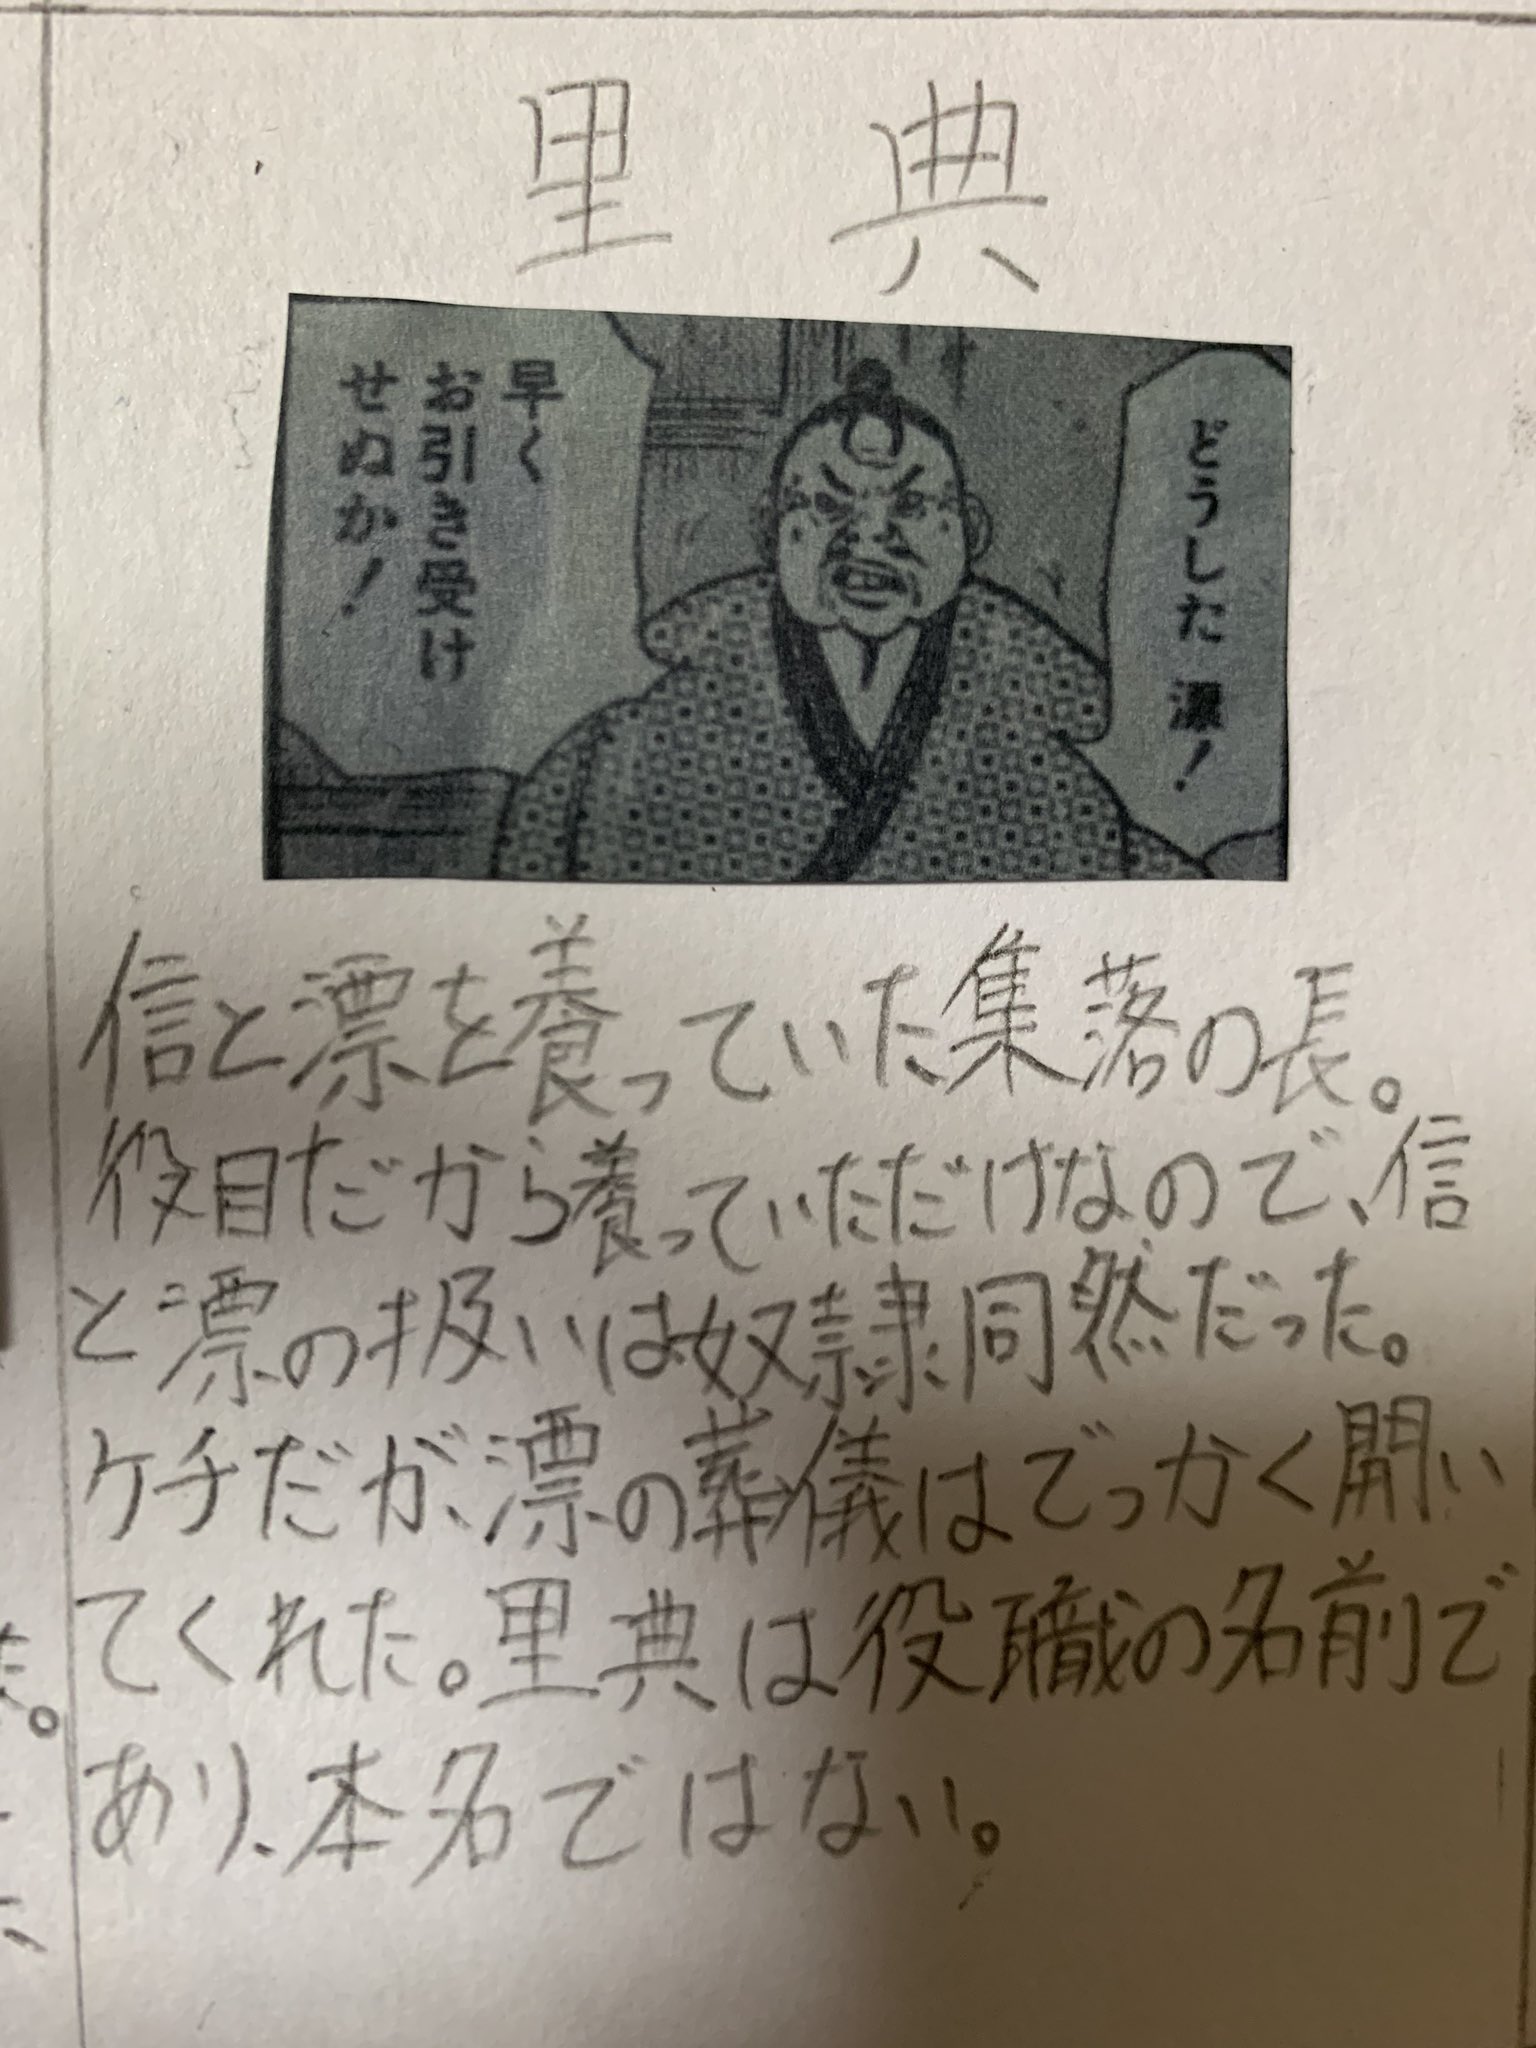 里典
どうした 漂！
早く
お引き受け
せぬか！
信と漂を養っていた集落の長。
役目だから養っていただけなので、信
と漂の扱いは奴隷同然だった。
ケチだが、漂の葬儀はでっかく開い
てくれた。里典は役職の名前で
あり、本名ではない。